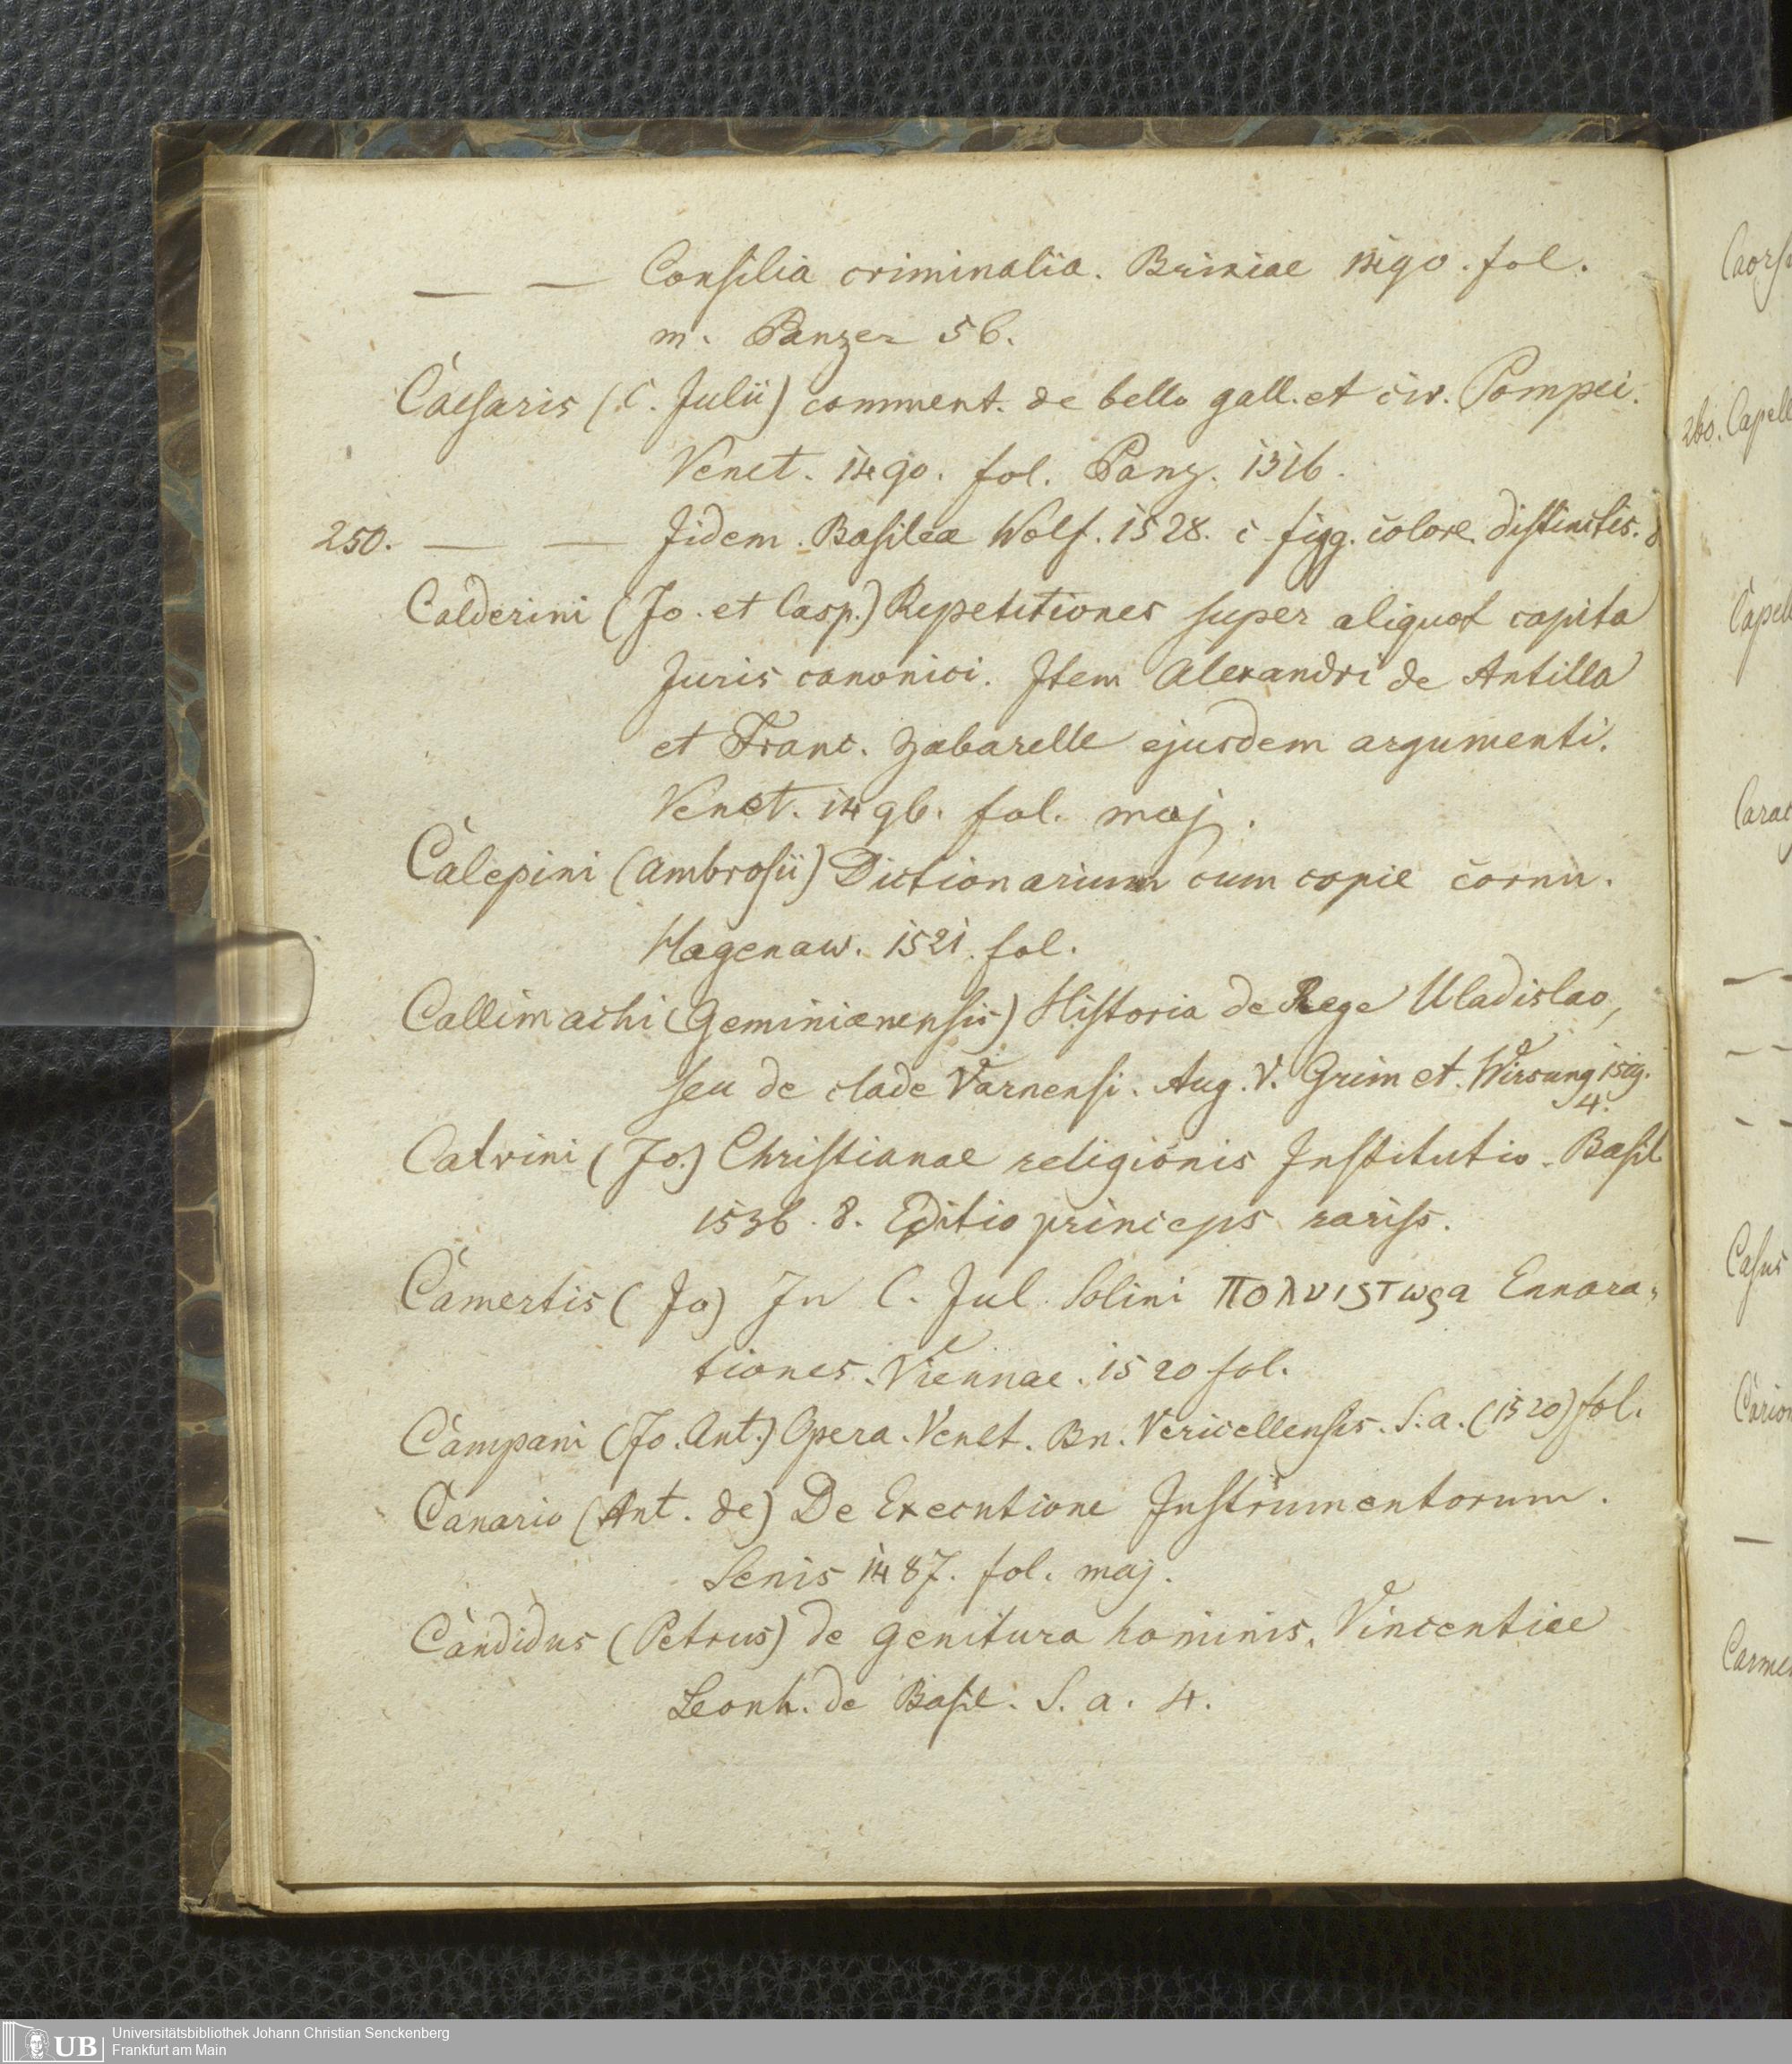 — — Consilia criminalia. Brixiae 1490. fol.
m. Panzer 56.
Caesaris (C. Julii) comment. de bello gall. et civ. Pompei.
Venet. 1490. fol. Panz. 1316.
250. — — Iidem. Basilea Wolf. 1528. c figg. colore distinctis. 8
Calderini (Jo. et Casp.) Repetitiones super aliquot capita
Juris canonici. Item Alexandri de Antilla
et Franc. Zabarelle ejusdem argumenti.
Venet. 1496. fol. maj.
Calepini (Ambrosii) Dictionarium cum copie cornu.
Hagenaw. 1521. fol.
Callimachi (Geminianensis) Historia de Rege Uladislao,
seu de clade Varnensi. Aug. V. Grim et. Wirsung 1519.
4.
Calvini (Jo.) Christianae religionis Institutio. Basil
1536. 8. Editio princeps rariss.
Camertis (Jo) In C. Jul Solini πολυιστωρα Ennara-
tiones. Viennae. 1520 fol.
Campani (Jo. Ant.) Opera. Venet. Bn. Vericellensis. S. a. (1520) fol.
Canario (Ant. de) De Executione Instrumentorum.
Senis 1487. fol. maj.
Candidus (Petrus) de genitura hominis. Vincentiae
Leonh. de Basil. S. a. 4.
260. Capell
Casus
UB
Universitätsbibliothek Johann Christian Senckenberg
Frankfurt am Main